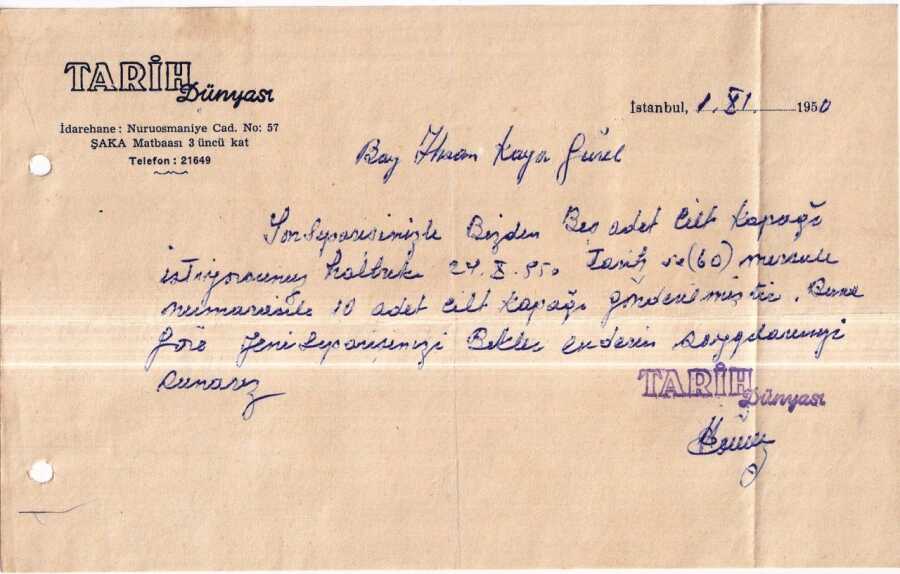 TARİH
Dünyası
İdarehane : Nuruosmaniye Cad. No: 57
ŞAKA Matbaası 3 üncü kat
Telefon : 21649
İstanbul, 1. XI. 1950
Bay İhsan Kaya Gürel
Son siparişinizle Bizden Beş adet Cilt Kapağı
istiyorsunuz halbuki 24. X. 950 Tarih ve (60) mersule
numarasile 10 adet Cilt Kapağı gönderilmiştir. Buna
göre yeni siparişinizi Bekler en derin saygılarımızı
sunarız
TARİH
Dünyası